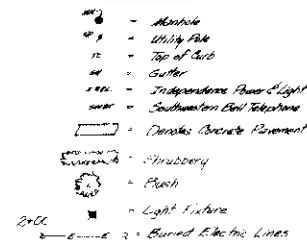 MH - Manhole
- Utility Pole
TC - Top of Curb
GU - Gutter
- Independence Power & Light
SWBT - Southwestern Bell Telephone
- Denotes Concrete Pavement
- Shrubbery
- Light Fixture
2+00
E E - Buried Electric Lines